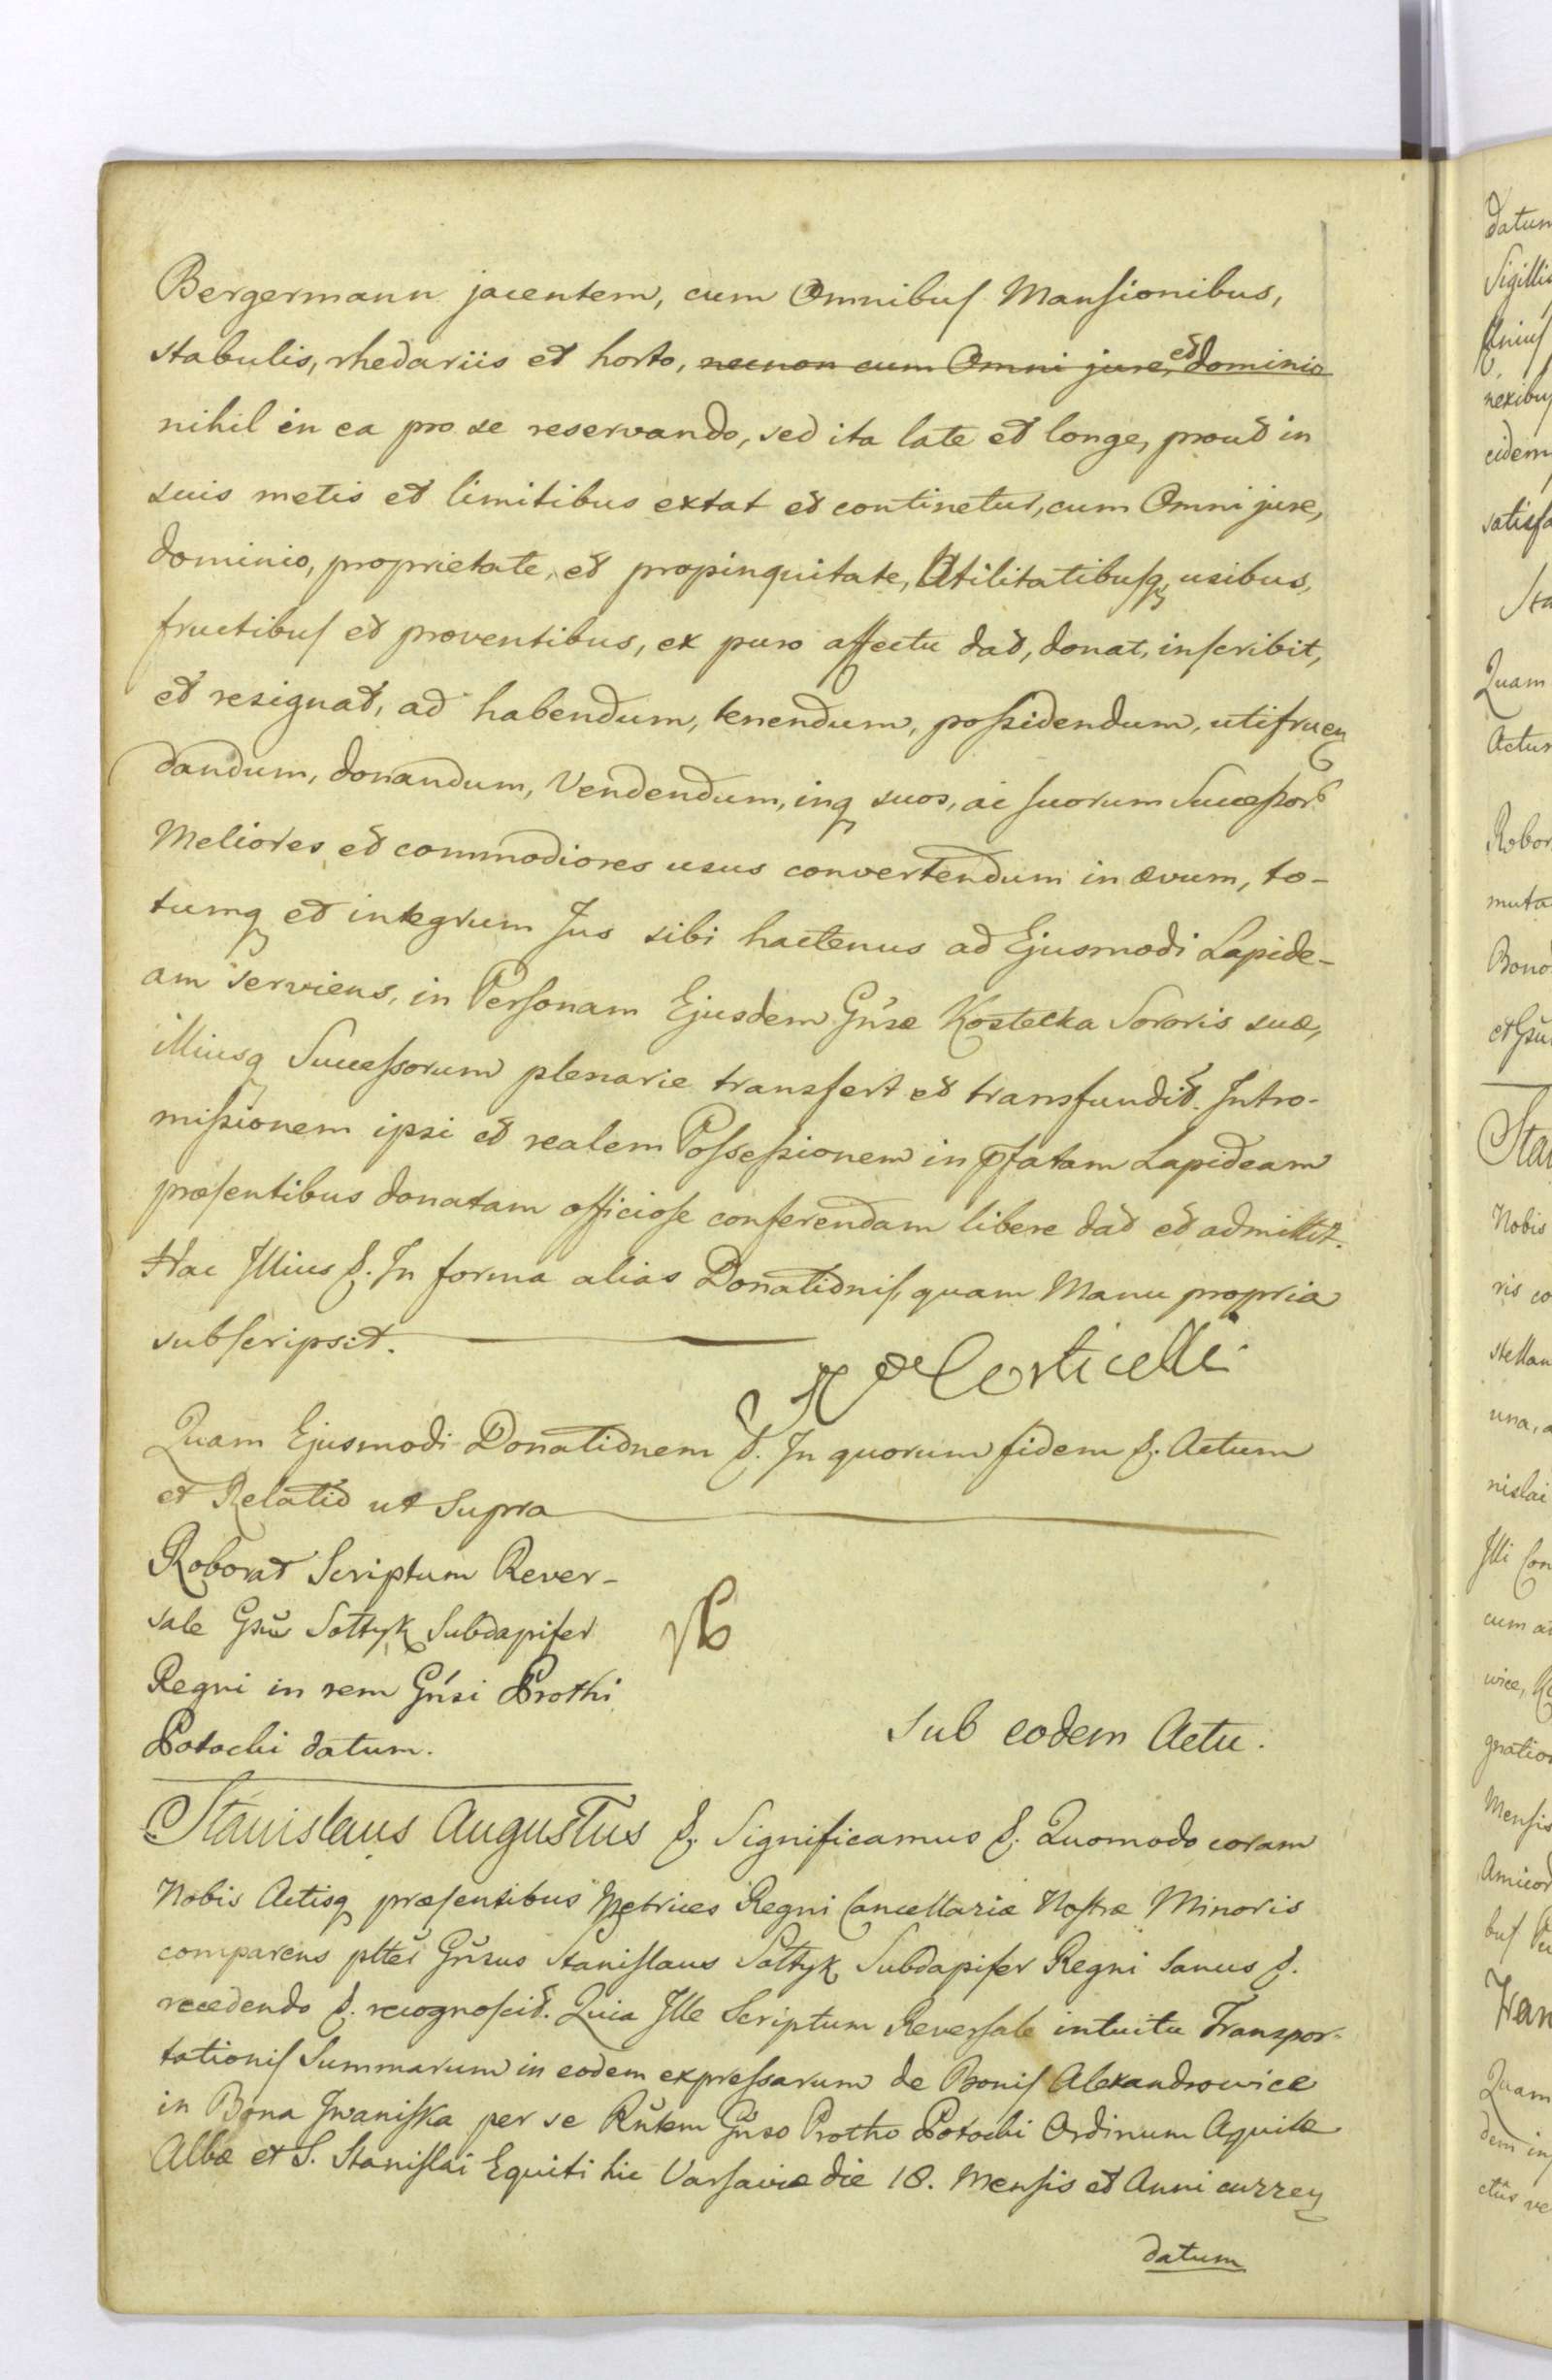 Bergermann jacentem, cum Omnibus Mansionibus,
stabulis, rhedariis et horto, necnon cum Omni jure, et dominio
nihil in ea pro se reservando, sed ita late et longe, prout in
suis metis et limitibus extat et continetur, cum Omni jure,
dominio, proprietate, et propinquitate, Utilitatibusq, usibus,
fructibus et proventibus, ex puro affectu dat, donat, inscribit,
et resignat, ad habendum, tenendum, possidendum, utifruen
dandum, donandum, Vendendum, inq suos, ac suorum Successor
Meliores et commodiores usus convertendum in ævum, to-
tumq et integrum Jus sibi hactenus ad Ejusmodi Lapide-
am serviens, in Personam Ejusdem Gnsæ Kostecka Sororis suæ,
illiusq Successorum plenarie transfert et transfundit. Intro-
missionem ipsi et realem Possessionem in pfatam Lapideam
præsentibus donatam officiose conferendam libere dat et admittit.
Hac Illius &. In forma alias Donationis, quam Manu propria
subscripsit.
Corticelli
Quam Ejusmodi Donationem &. In quorum fidem &. Actum
et Relatio ut supra
Roborat Scriptum Rever-
sale Gsus Sołtyk Subdapifer
Regni in rem Gnsi Prothi
Potocki datum.
Sub eodem Actu.
Stanislaus Augustus &. Significamus &. Quomodo coram
Nobis Actisq præsentibus Metrices Regni Cancellariæ Nostræ Minoris
comparens plter Gnsus Stanislaus Sołtyk Subdapifer Regni Sanus &.
recedendo &. recognoscit. Quia Ille Scriptum Reversale intuitu Transpor-
tationis Summarum in eodem expressarum de Bonis Alexandrowice
in Bona Jwaniska per se Rntem Gnso Protho Potocki Ordinum Aquilæ
Albæ et S. Stanislai Equiti hic Varsaviæ die 18. Mensis et Anni curren
datum